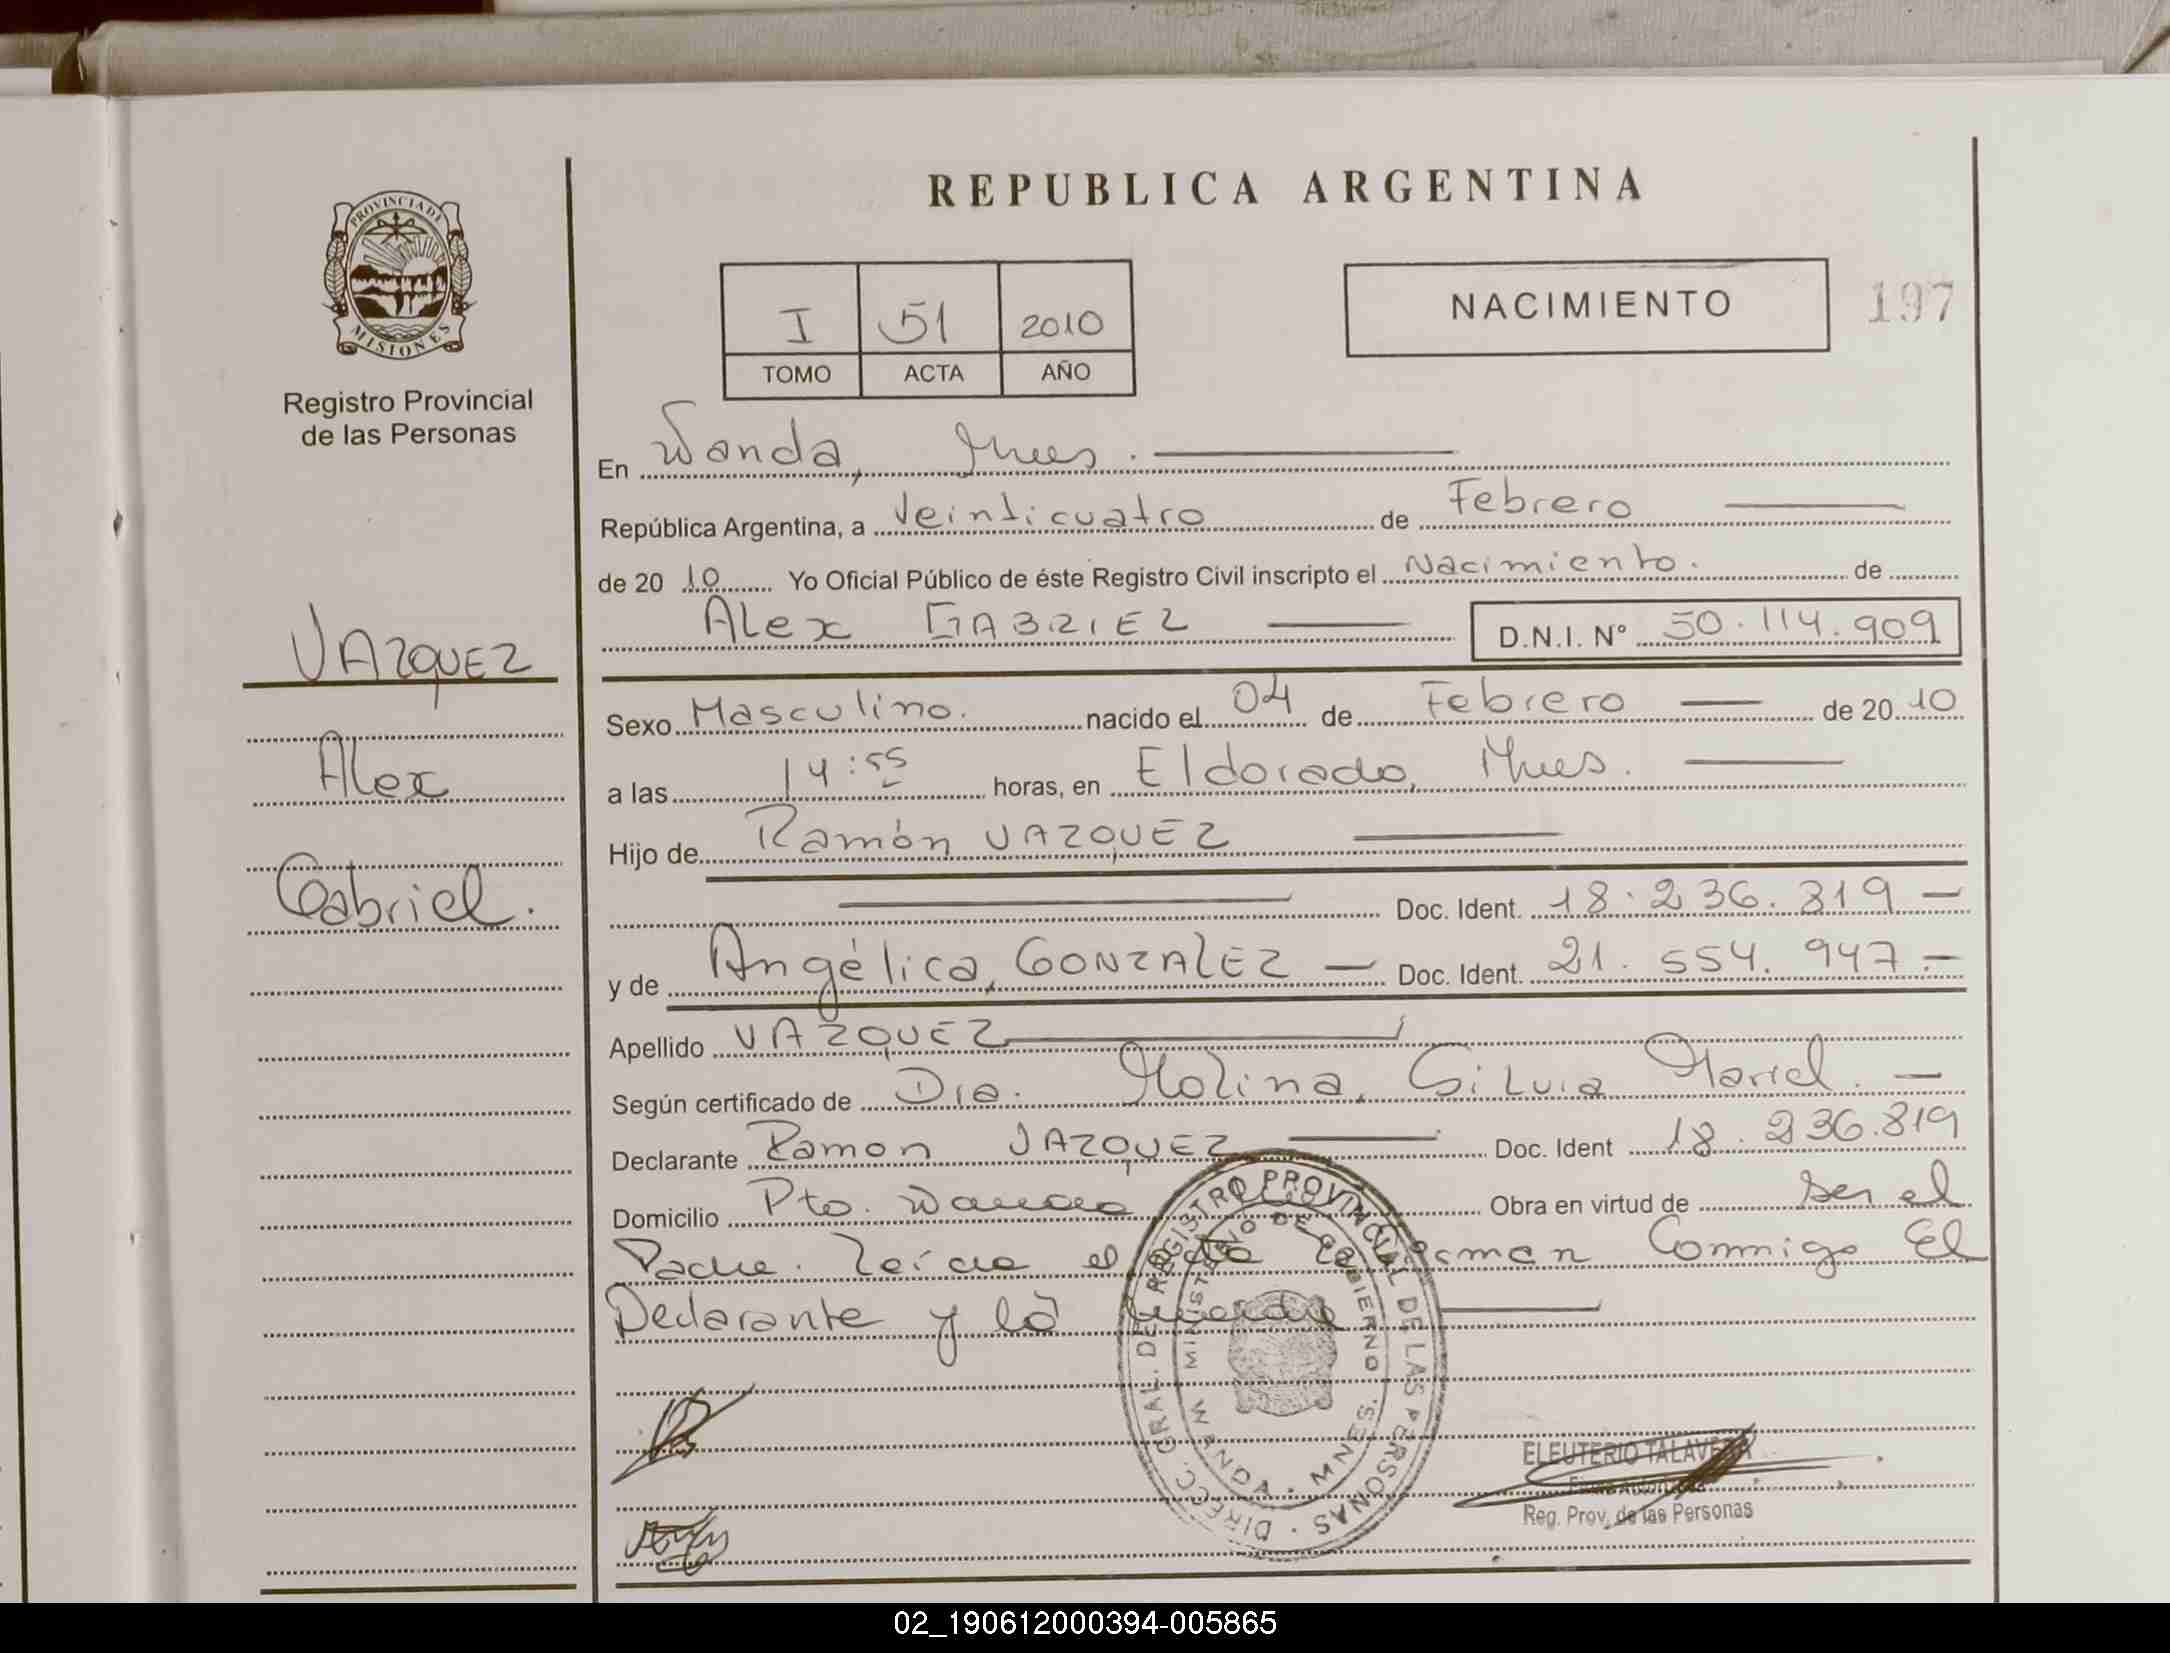 REPUBLICA ARGENTINA
PROVINCIA DE
MISIONES
Registro Provincial
de las Personas
I 51 2010
TOMO ACTA AÑO
NACIMIENTO
197
VAZQUEZ
Alex
Gabriel.
En Wanda, Mnes.
República Argentina, a Veinticuatro de Febrero
de 20 10 Yo Oficial Público de éste Registro Civil inscripto el Nacimiento. de
Alex GABRIEL D.N.I. N° 50.114.909
Sexo Masculino. nacido el 04 de Febrero de 20 10
a las 14:55 horas, en Eldorado, Mnes.
Hijo de Ramón VAZQUEZ
Doc. Ident. 18.236.819
y de Angélica, GONZALEZ Doc. Ident. 21.554.947.
Apellido VAZQUEZ
Según certificado de Dra. Molina, Silvia Mariel.
Declarante Ramon VAZQUEZ Doc. Ident 18.236.819
Domicilio Pto. Wanda Obra en virtud de ser el
Padre. Leída el Acta la firman Conmigo El
Declarante y la madre
DIRECC. GRAL. DEL REGISTRO PROVINCIAL DE LAS PERSONAS
MINISTERIO DE GOBIERNO
WANDA - MNES.
ELEUTERIO TALAVERA
Reg. Prov. de las Personas
02_190612000394-005865